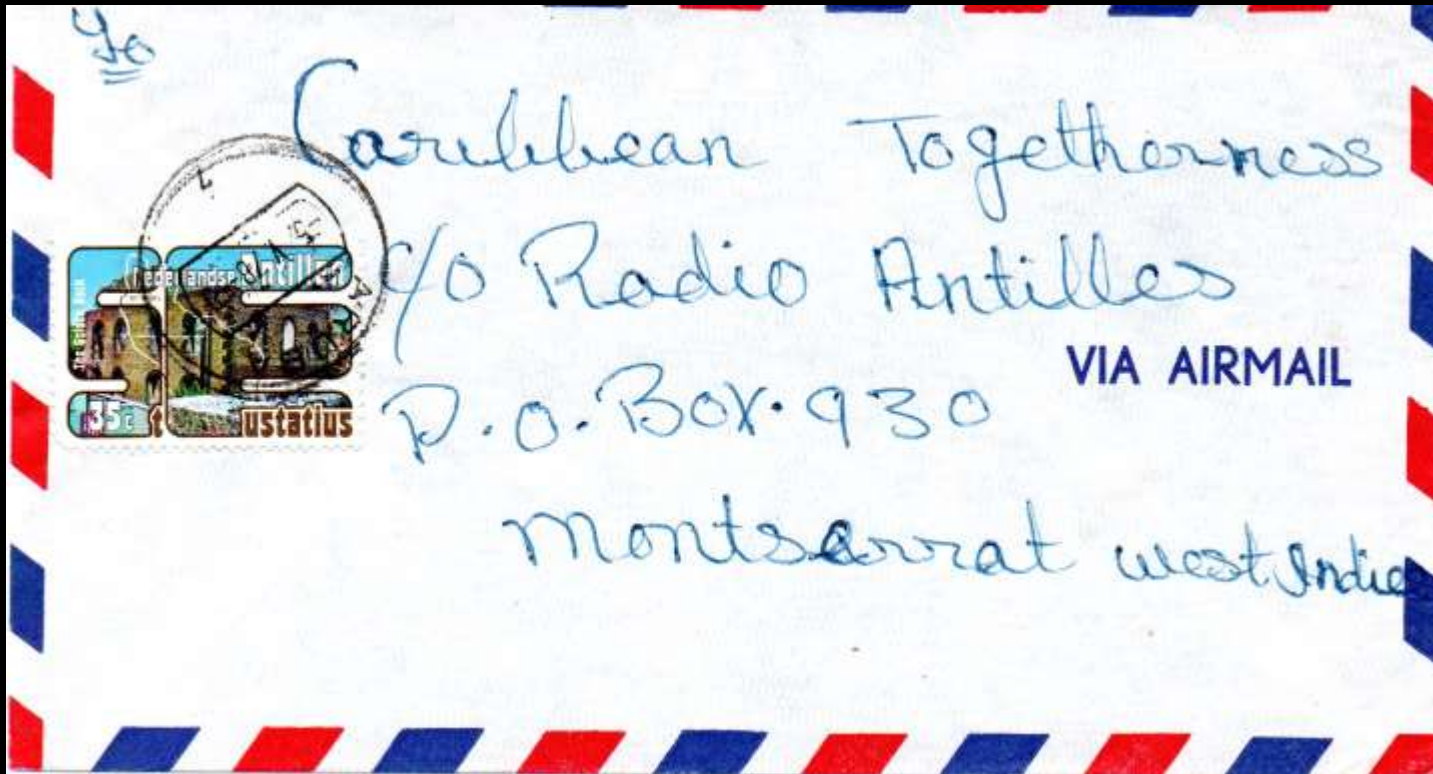 To
Caribbean Togetherness
c/o Radio Antilles
P.O. Box. 930
Montserrat west Indies
VIA AIRMAIL
Nederlandse Antillen
35c
St Eustatius